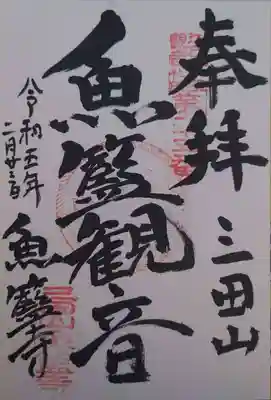 奉拝
三田山
魚籃観音
令和五年
二月廿三日
魚籃寺